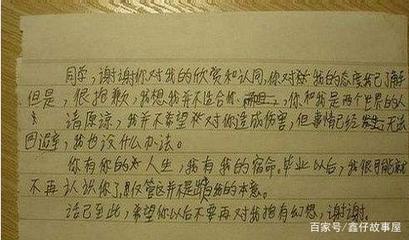 同学，谢谢你对我的欣赏和认同，你对于我的态度我已了解
但是，很抱歉，我想我并不适合你，你和我是两个世界的人
请原谅，我并不希望对你造成伤害，但事情已经发生无法
回避，我也没什么办法。
你有你的人生，我有我的宿命。毕业以后，我很可能就
不再认识你了，尽管这并不是我的本意。
话已至此，希望你以后不要再对我抱有幻想，谢谢。
百家号/鑫仔故事屋